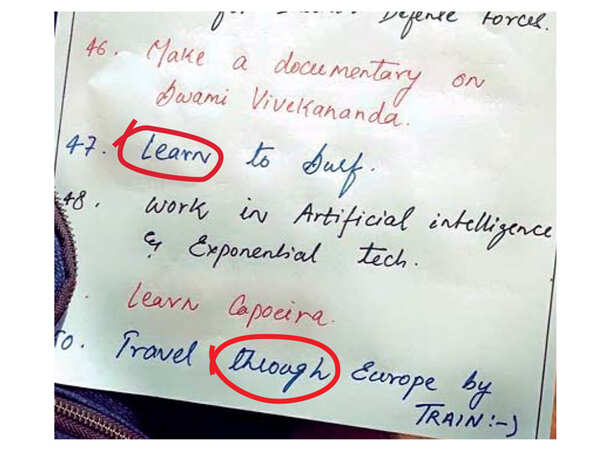 Defense Forces.
46. Make a documentary on
Swami Vivekananda.
47. Learn to Surf.
48. Work in Artificial intelligence
& Exponential tech.
. Learn Capoeira.
50. Travel through Europe by
TRAIN :-)